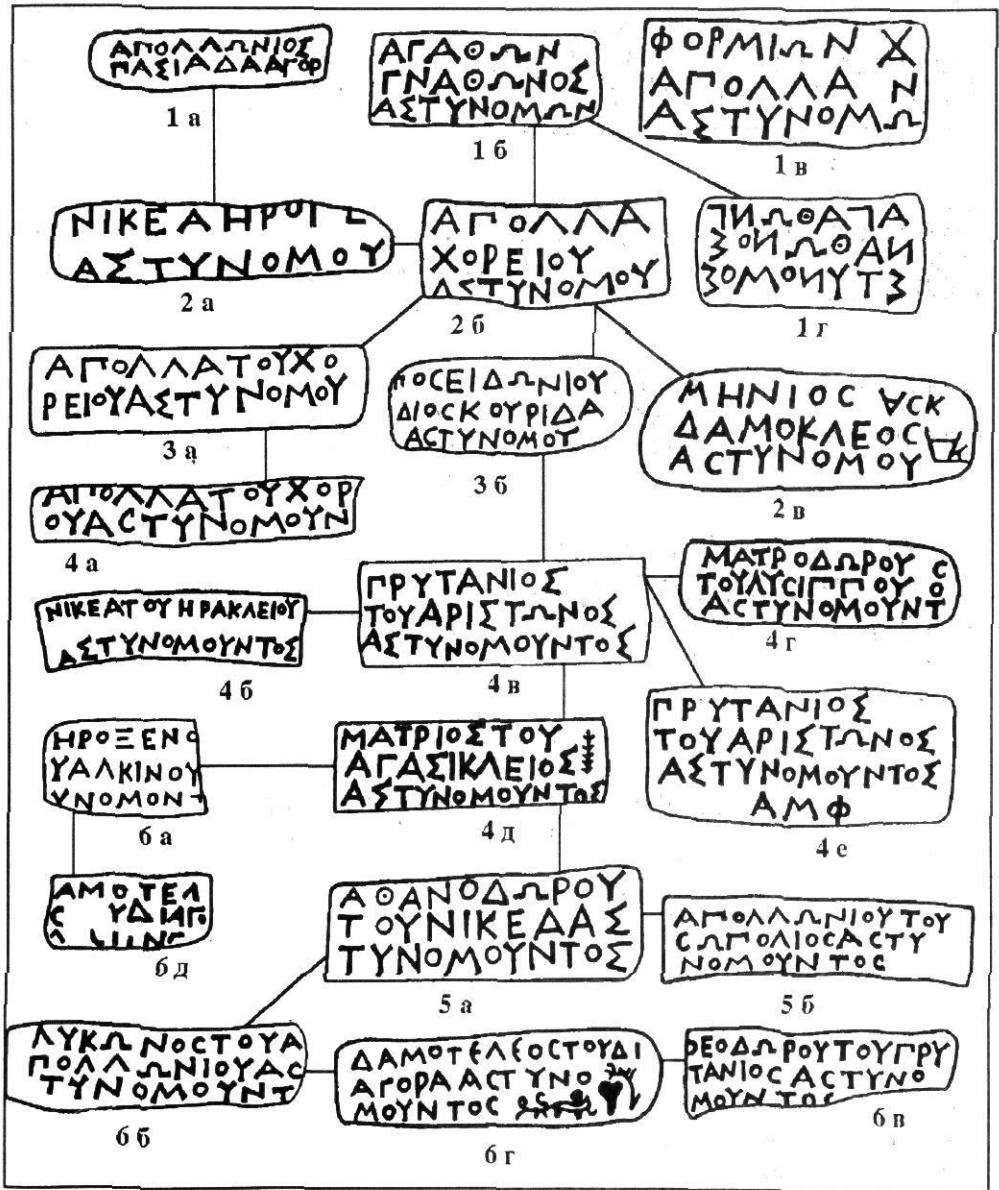 ΑΠΟΛΛΩΝΙΟΣ
ΠΑΣΙΑΔΑΑΓΟΡ
1 а
ΑΓΑΘΩΝ
ΓΝΑΘΩΝΟΣ
ΑΣΤΥΝΟΜΩΝ
1 б
ΦΟΡΜΙΩΝ
ΑΠΟΛΛΑ Ν
ΑΣΤΥΝΟΜΩ
1 в
ΝΙΚΕΑΗΡΟΓΕ
ΑΣΤΥΝΟΜΟΥ
2 а
ΑΠΟΛΛΑ
ΧΟΡΕΙΟΥ
ΑΣΤΥΝΟΜΟΥ
2 б
ΑΓΑΘΩΝ
ΝΑΘΩΝΟΣ
ΣΤΥΝΟΜΟΣ
1 г
ΑΠΟΛΛΑΤΟΥΧΟ
ΡΕΙΟΥΑΣΤΥΝΟΜΟΥ
3 а
ΠΟCΕΙΔΩΝΙΟΥ
ΔΙΟCΚΟΥΡΙΔΑ
ΑCΤΥΝΟΜΟΥ
3 б
ΜΗΝΙΟC ΑCΚ
ΔΑΜΟΚΛΕΟC
ΑCΤΥΝΟΜΟΥ
2 в
ΑΠΟΛΛΑΤΟΥΧΟΡ
ΟΥΑCΤΥΝΟΜΟΥΝ
4 а
ΝΙΚΕΑΤΟΥΗΡΑΚΛΕΙΟΥ
ΑΣΤΥΝΟΜΟΥΝΤΟΣ
4 б
ΠΡΥΤΑΝΙΟΣ
ΤΟΥΑΡΙΣΤΩΝΟΣ
ΑΣΤΥΝΟΜΟΥΝΤΟΣ
4 в
ΜΑΤΡΟΔΩΡΟΥ C
ΤΟΥΛΥCΙΠΠΟΥ Ο
ΑCΤΥΝΟΜΟΥΝΤ
4 г
ΗΡΟΞΕΝΟ
ΥΑΛΚΙΝΟΥ
ΥΝΟΜΟΝΤ
6 а
ΜΑΤΡΙΟΣΤΟΥ
ΑΓΑΣΙΚΛΕΙΟΣ
ΑΣΤΥΝΟΜΟΥΝΤΟΣ
4 д
ΠΡΥΤΑΝΙΟΣ
ΤΟΥΑΡΙΣΤΩΝΟΣ
ΑΣΤΥΝΟΜΟΥΝΤΟΣ
ΑΜΦ
4 е
ΑΜΟΤΕΛ
C ΥΔΙΑΓΟ
6 д
ΑΘΑΝΟΔΩΡΟΥ
ΤΟΥΝΙΚΕΔΑΣ
ΤΥΝΟΜΟΥΝΤΟΣ
5 а
ΑΠΟΛΛΩΝΙΟΥΤΟΥ
CΩΠΟΛΙΟCΑCΤΥ
ΝΟΜΟΥΝΤΟC
5 б
ΛΥΚΩΝΟCΤΟΥΑ
ΠΟΛΛΩΝΙΟΥΑC
ΤΥΝΟΜΟΥΝΤ
6 б
ΔΑΜΟΤΕΛΕΟCΤΟΥΔΙ
ΑΓΟΡΑΑCΤΥΝΟ
ΜΟΥΝΤΟC
6 г
ΘΕΟΔΩΡΟΥΤΟΥΠΡΥ
ΤΑΝΙΟCΑCΤΥΝΟ
ΜΟΥΝΤΟC
6 в